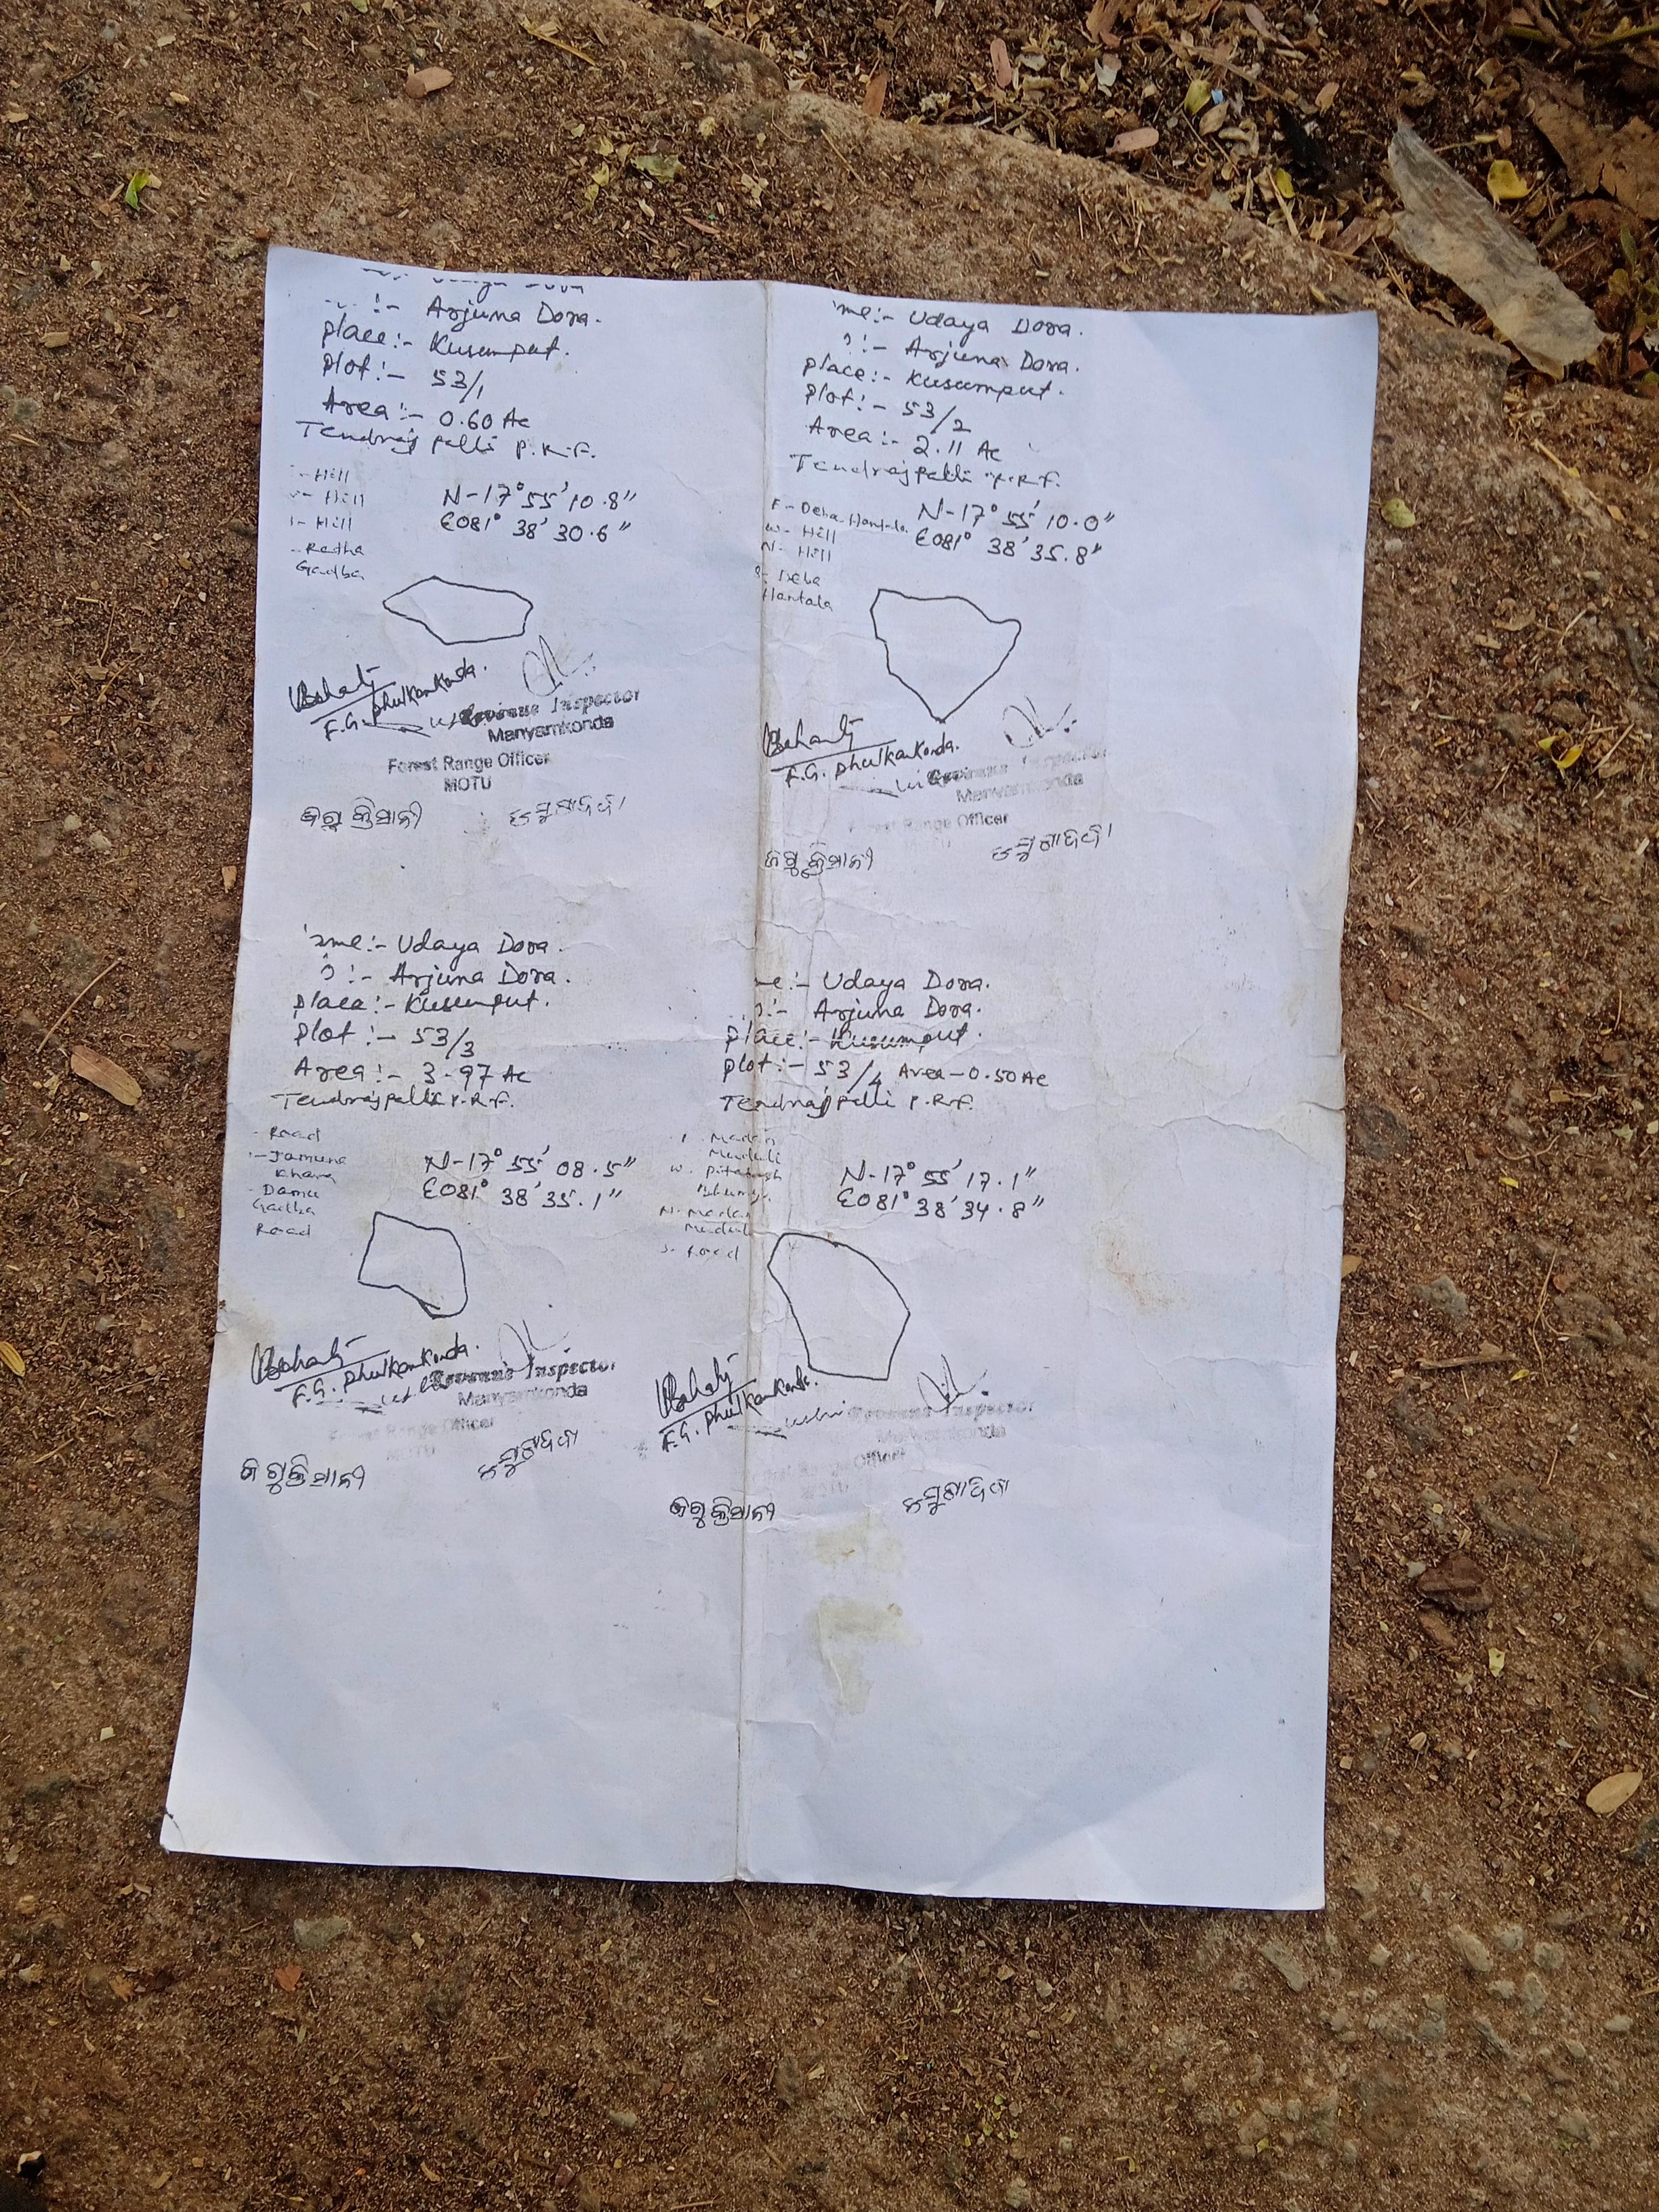 Arjuna Dora.
place:- Kusumput.
plot:- 53/1
Area:- 0.60 Ac
Tendrajpalli P.R.F.
- Hill
- Hill
- Hill
- Radha
Gadba
N-17° 55' 10.8"
E081° 38' 30.6"
F.G. Phulkankonda.
Revenue Inspector
Manyamkonda
Forest Range Officer
MOTU
me:- Udaya Dora.
:- Arjuna Dora.
place:- Kusumput.
plot:- 53/2
Area:- 2.11 Ac
Tendrajpalli P.R.F.
E- Deba Hantala.
W- Hill
N- Hill
S- Deba
Hantala
N-17° 55' 10.0"
E081° 38' 35.8"
F.G. Phulkankonda.
Revenue Inspector
Manyamkonda
Forest Range Officer
ame:- Udaya Dora.
:- Arjuna Dora.
place:- Kusumput.
plot:- 53/3
Area:- 3.97 Ac
Tendrajpalli P.R.F.
- Road
- Jamuna
Khara
- Damu
Gadba
Road
N-17° 55' 08.5"
E081° 38' 35.1"
F.G. Phulkankonda.
Revenue Inspector
Manyamkonda
Forest Range Officer
MOTU
me:- Udaya Dora.
:- Arjuna Dora.
place:- Kusumput.
plot:- 53/4 Area-0.50 Ac
Tendrajpalli P.R.F.
Madan
Muduli
W.
N. Madan
Muduli
S- Road
N-17° 55' 17.1"
E081° 38' 34.8"
F.G. Phulkankonda.
Revenue Inspector
Manyamkonda
Forest Range Officer
MOTU